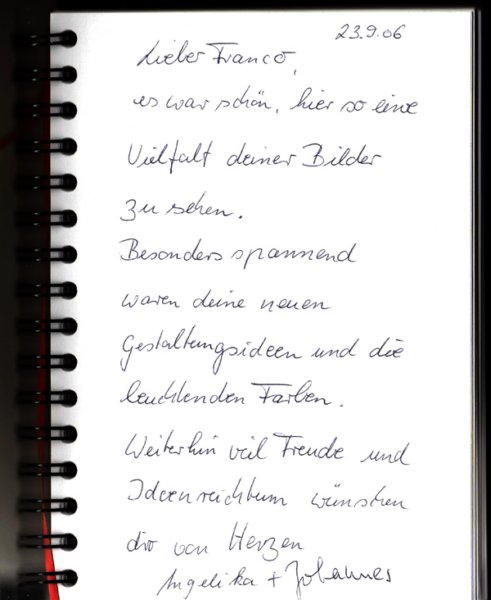 23.9.06
Lieber Franco,
es war schön, hier so eine
Vielfalt deiner Bilder
zu sehen.
Besonders spannend
waren deine neuen
Gestaltungsideen und die
leuchtenden Farben.
Weiterhin viel Freude und
Ideenreichtum wünschen
dir von Herzen
Angelika + Johannes